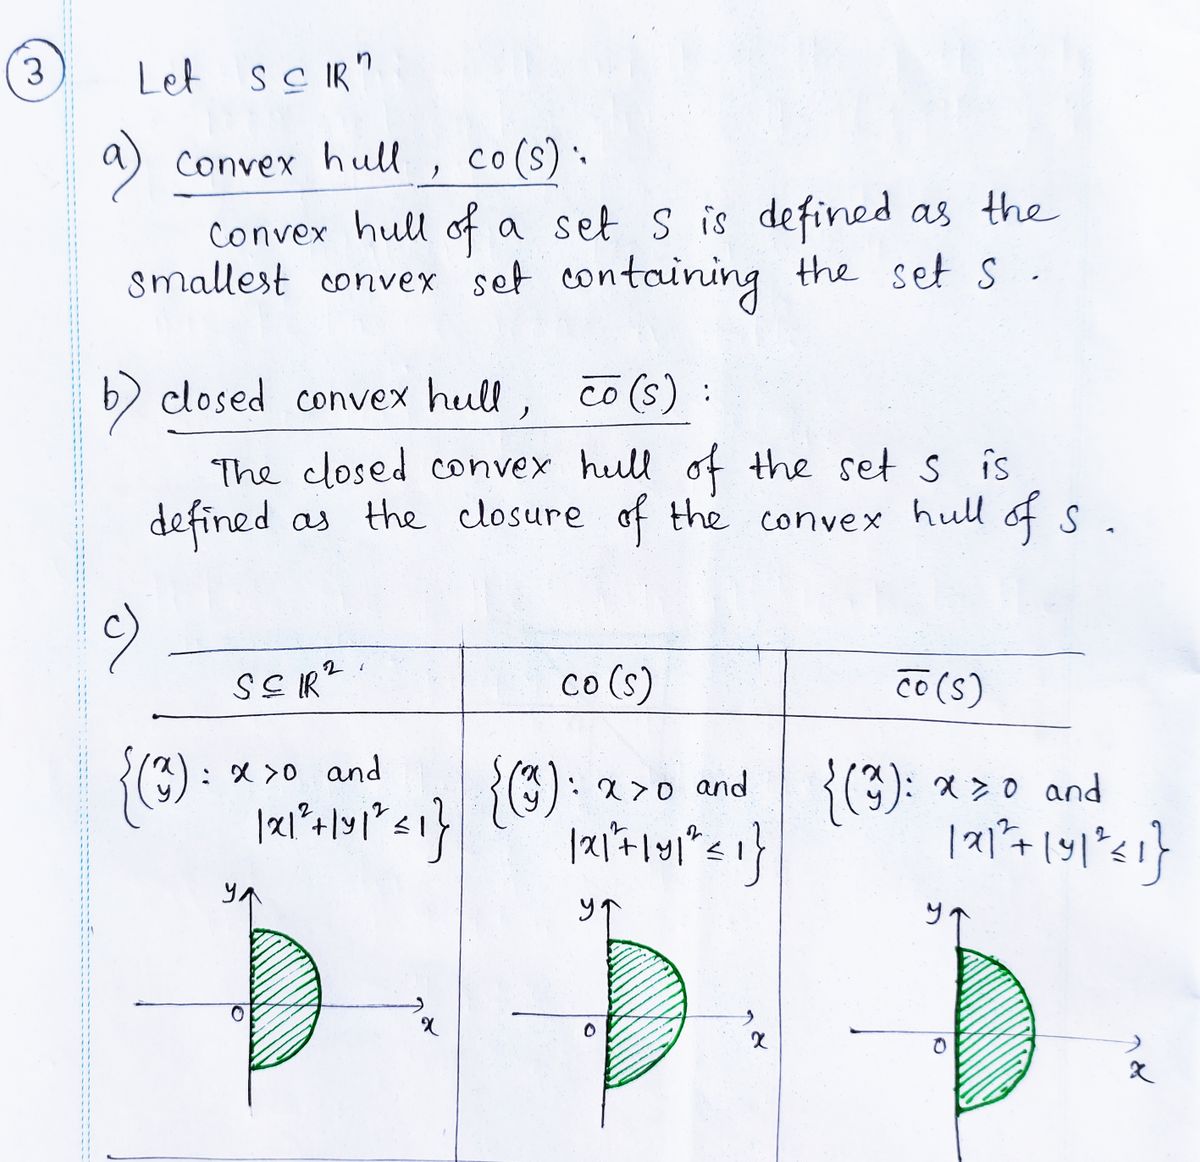 3 Let S ⊆ ℝⁿ
a) convex hull, co(S):
convex hull of a set S is defined as the
smallest convex set containing the set S.
b) closed convex hull, c̅o̅(S):
The closed convex hull of the set S is
defined as the closure of the convex hull of S.
c)
S ⊆ ℝ² co(S) c̅o̅(S)
{(x y): x>0 and
|x|²+|y|² ≤ 1}
{(x y): x>0 and
|x|²+|y|² ≤ 1}
{(x y): x ≥ 0 and
|x|²+|y|² ≤ 1}
y
0
x
y
0
x
y
0
x